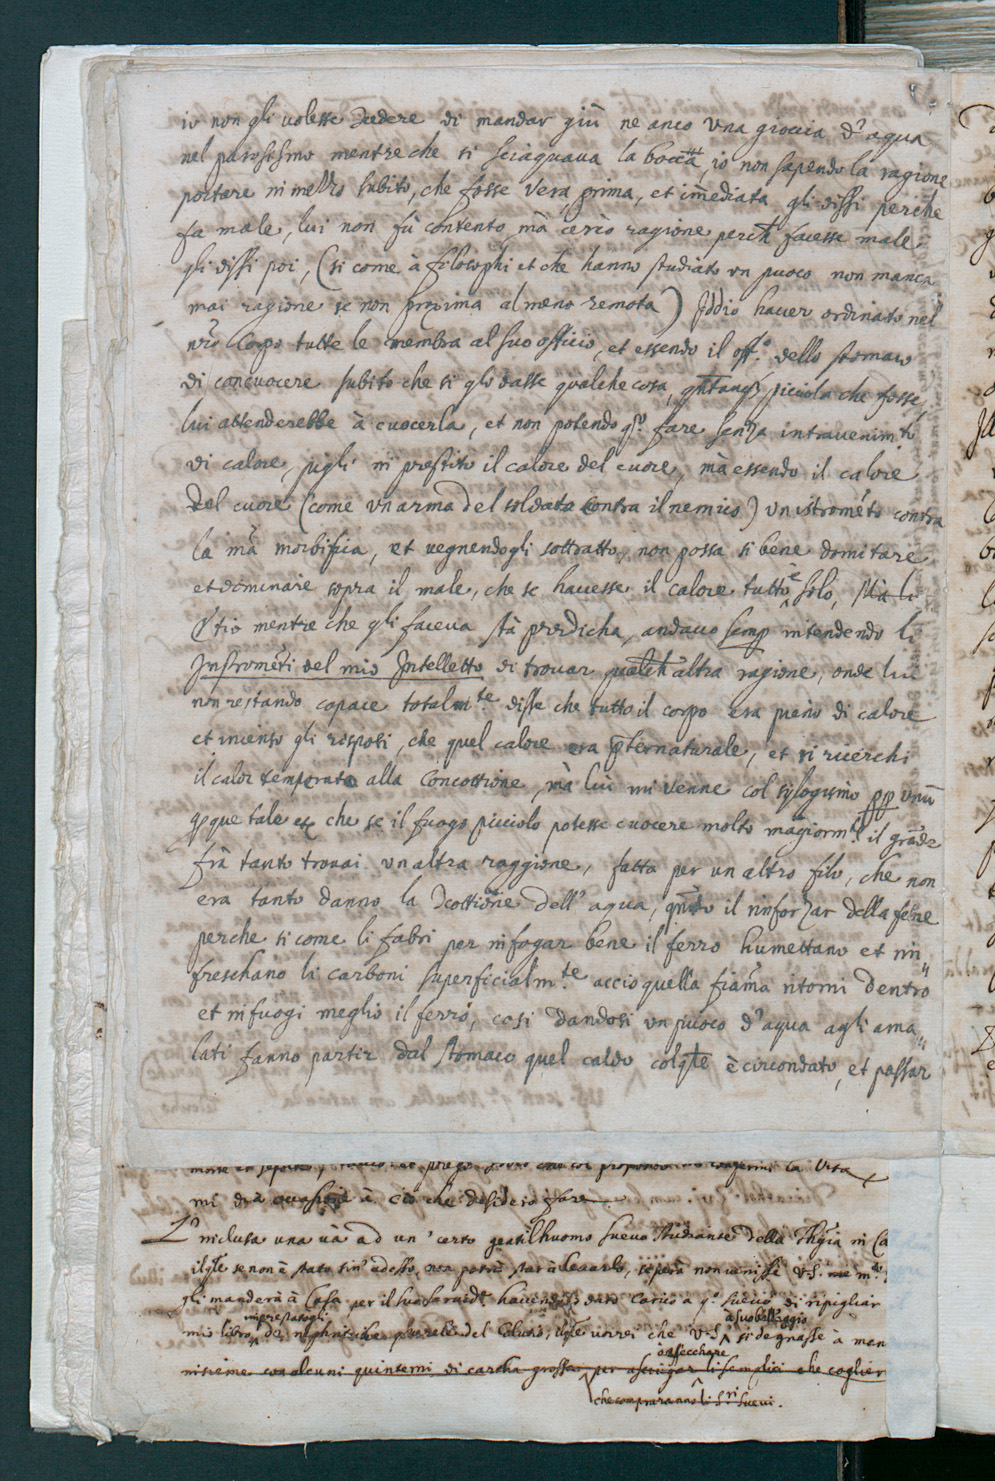 io non gli volesse credere di mandar giù ne anco una gioccia d'aqua
nel parosismo mentre che si sciaquava la bocca, io non sapendo la ragione
portare in mezzo subito, che fosse vera, prima, et im̃ediata gli dissi perche
fa male, lui non fù contento mà cercò ragione perch̃ facesse male
gli dissi poi, (si come à filosophi et che hanno studiato un puoco non manca
mai ragione se non proxima al meno remota) Iddio haver ordinato nel
nrõ Corpo tutte le membra al suo officio, et essendo il off.º dello stomaco
di concuocere subito che si gli dasse qualche cosa, picciola che fosse
lui attenderebbe à cuocerla, et non potendo q.º fare senza intravenim.to
di calore, pigli in prestito il calore del cuore, mà essendo il calore
del cuore (come un arma del soldato contra il nemico) un istromẽto contra
la mã morbifica, et vegnendogli sottratto, non possa si bene domitare
et dominare sopra il male, che se havesse il calore tutto è solo, Mà li
mentre che gli faceva stà predicha, andavo semp intendendo li
Instromẽti del mio Intelletto di trovar qualch̃ altra ragione, onde lui
non restando capace totalm.te disse che tutto il corpo era pieno di calore
et incenso gli risposi, che quel calore era p̃ternaturale, et si ricerchi
il calor temperato alla Concottione, mà lui mi venne col sylogismo pp unũ
que tale che se il fuogo picciolo potesse cuocere molto magiorm.te il grãde
frà tanto trovai un altra raggione, fatta per un altro filo, che non
era tanto danno la Decottione dell' aqua, quãto il rinforzar della febre
perche si come li fabri per infogar bene il ferro humettano et rin
freschano li carboni superficialm.te accio quella fiam̃a ritorni dentro
et infuogi meglio il ferro, cosi dandosi un puoco d'aqua agli ama
lati fanno partir dal stomaco quel caldo colq̃le è circondato, et passar
mi dia occasione à ciò che desidero fare
L'inclusa una và ad un' certo gentilhuomo Suevo studiante della in Ca
ilq̃le se non è stato sin' adesso, non potrà star à levarlo, V.S.
gli manderà à Casa per il suo havendo dato carico a q.º suevo di ripigliar
mio libro imprestatogli del Coluro, ilq̃le vorrei che V.S. à suo bell'aggio si degnasse à man
insieme con alcuni quinterni di carta grossa per asciugar onsecchare li semplici che coglier
che comprarano li S.ri suevi.